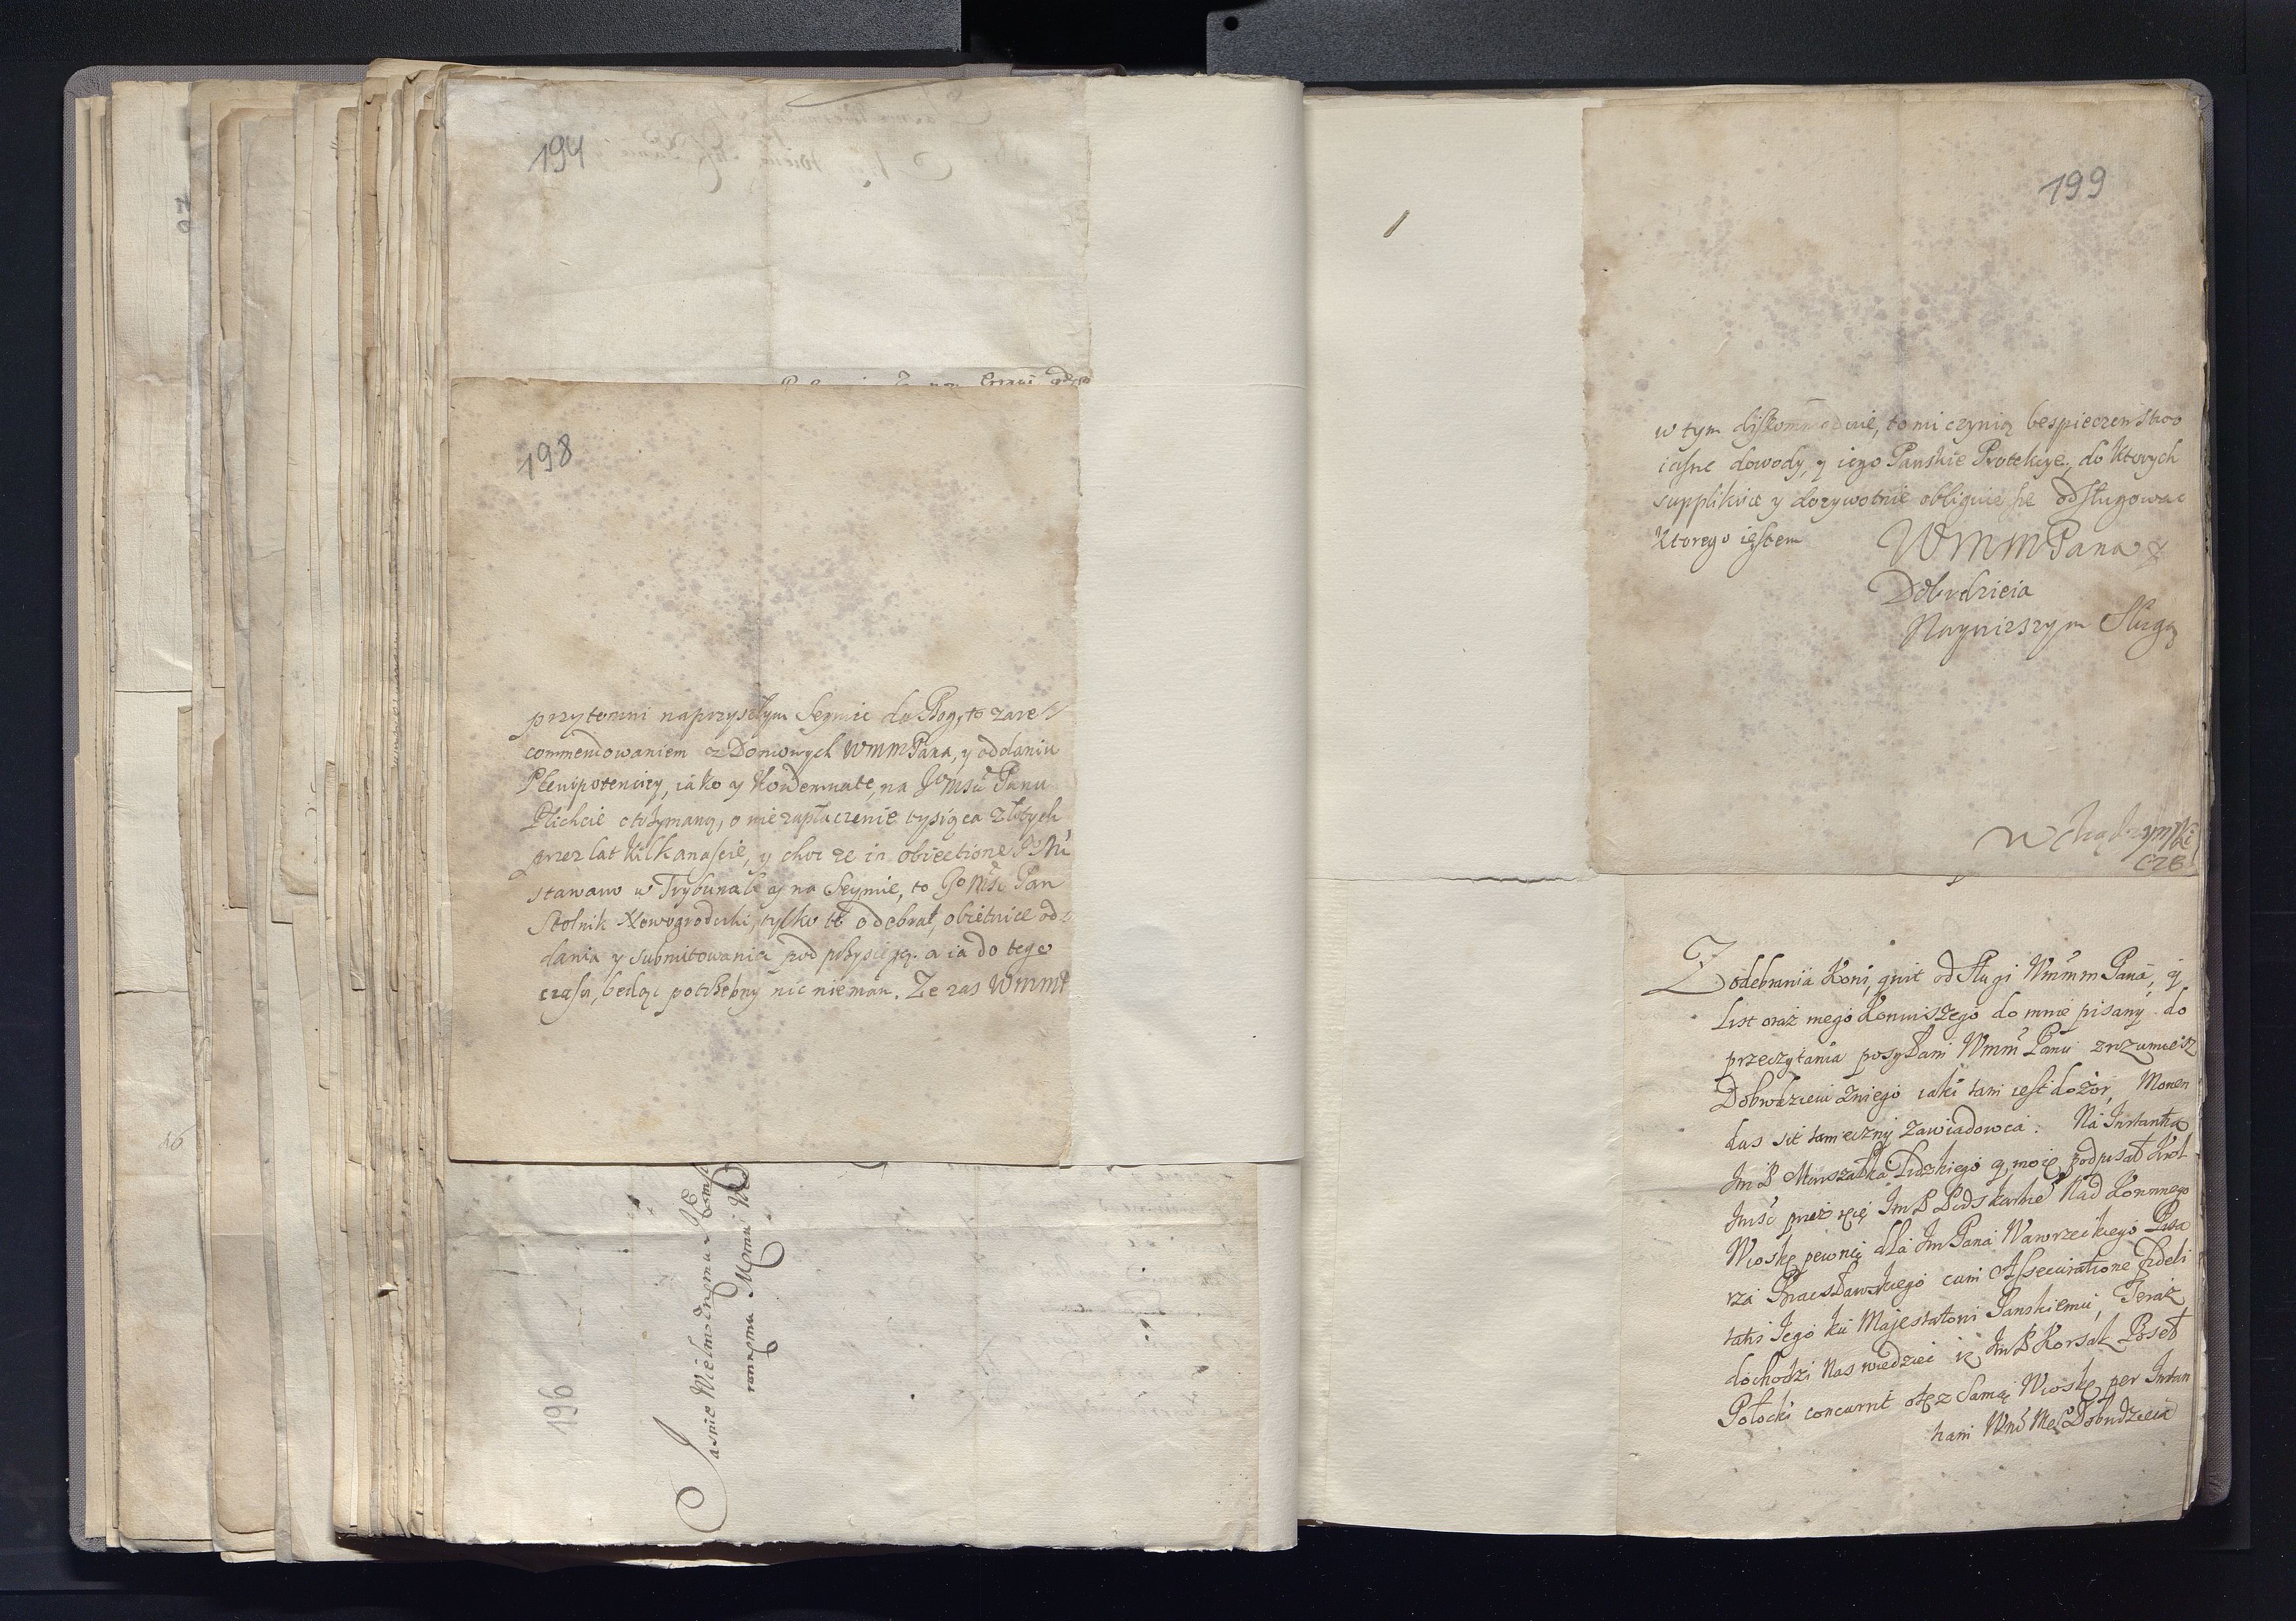 194
198
przytomni naprzyszłym Seymie da Bog, to zare
commendowaniem z Domowych WMMPana, y oddaniu
Plenipotencyey, iako y Kondemnate, na JoMsći Panu
Plichcie otrzymaną, o niezapłaczenie tysiąca złotych
przez lat kilkanaście, y choć ze in obiectione
stawam w Trybunale y na Seymie, to Go Mść Pan
Stolnik Nowogrodzki, tylko te odebrał, obietnice od
dania y submitowania pod przysięgą. a ia do tego
czasu, będąc potrzebny nic niemam. Ze zas WMMP
196
Jasnie Wielmoznemu
memu Memu
199
w tym, to mi czynią bespieczenstwo
iasne dowody, y iego Panskie Protekcye, do ktorych
supplikuie y dozywotnie obliguie sie odsługowac
ktorego iestem WMMPana y
Dobrodzieia
Nayniższym Sługą
czb
Z odebrania Koni, quit od Sługi WmmmPana, y
List oraz mego Koniuszego do mnie pisany do
przeczytania posyłam Wmm Panu zrozumiesz
Dobrodzieiu zniego iaki tam iest dozor, Monen
dus sit tameczny Zawiadowca. Na Instantią
Jm P Marszałka Lidzkiego y moię podpisał Krol
Jmść przez się Jm P Podskarbie Nad
Wioskę pewnię dla Jm Pana Wawrzeckiego Pisa
rza Bracsławskiego cum Assecuratione fideli
tatis Jego ku Majestatowi Panskiemu, Teraz
dochodzi Nas wiedziec iż Jm P Korsak Poseł
Połocki concurrit o tęz Samąę Wioskę per Instan
tiam Wmć Meº Dobrodzieia